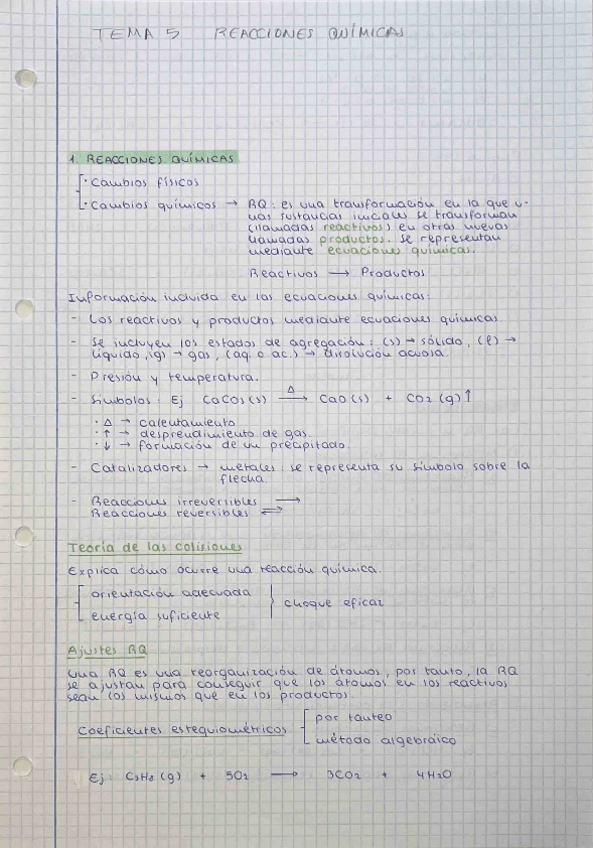 TEMA 5 REACCIONES QUÍMICAS
1. REACCIONES QUÍMICAS
· Cambios físicos
· Cambios químicos → RQ: es una transformación en la que u-
nas sustancias iniciales se transforman
(llamadas reactivos) en otras nuevas
llamadas productos. Se representan
mediante ecuaciones químicas.
Reactivos → Productos
Información incluida en las ecuaciones químicas:
- Los reactivos y productos mediante ecuaciones químicas
- Se incluyen los estados de agregación: (s) → sólido, (l) →
líquido, (g) → gas, (aq. o ac.) → disolución acuosa.
- Presión y temperatura.
- Símbolos: Ej CaCO3(s) —Δ→ CaO(s) + CO2(g)↑
· Δ → calentamiento
· ↑ → desprendimiento de gas.
· ↓ → formación de un precipitado.
- Catalizadores → metales: se representa su símbolo sobre la
flecha.
- Reacciones irreversibles →
Reacciones reversibles ⇌
Teoría de las colisiones
Explica cómo ocurre una reacción química.
orientación adecuada
energía suficiente
choque eficaz
Ajustes RQ
Una RQ es una reorganización de átomos, por tanto, la RQ
se ajustan para conseguir que los átomos en los reactivos
sean los mismos que en los productos.
Coeficientes estequiométricos
por tanteo
método algebráico
Ej: C3H8(g) + 5O2 → 3CO2 + 4H2O